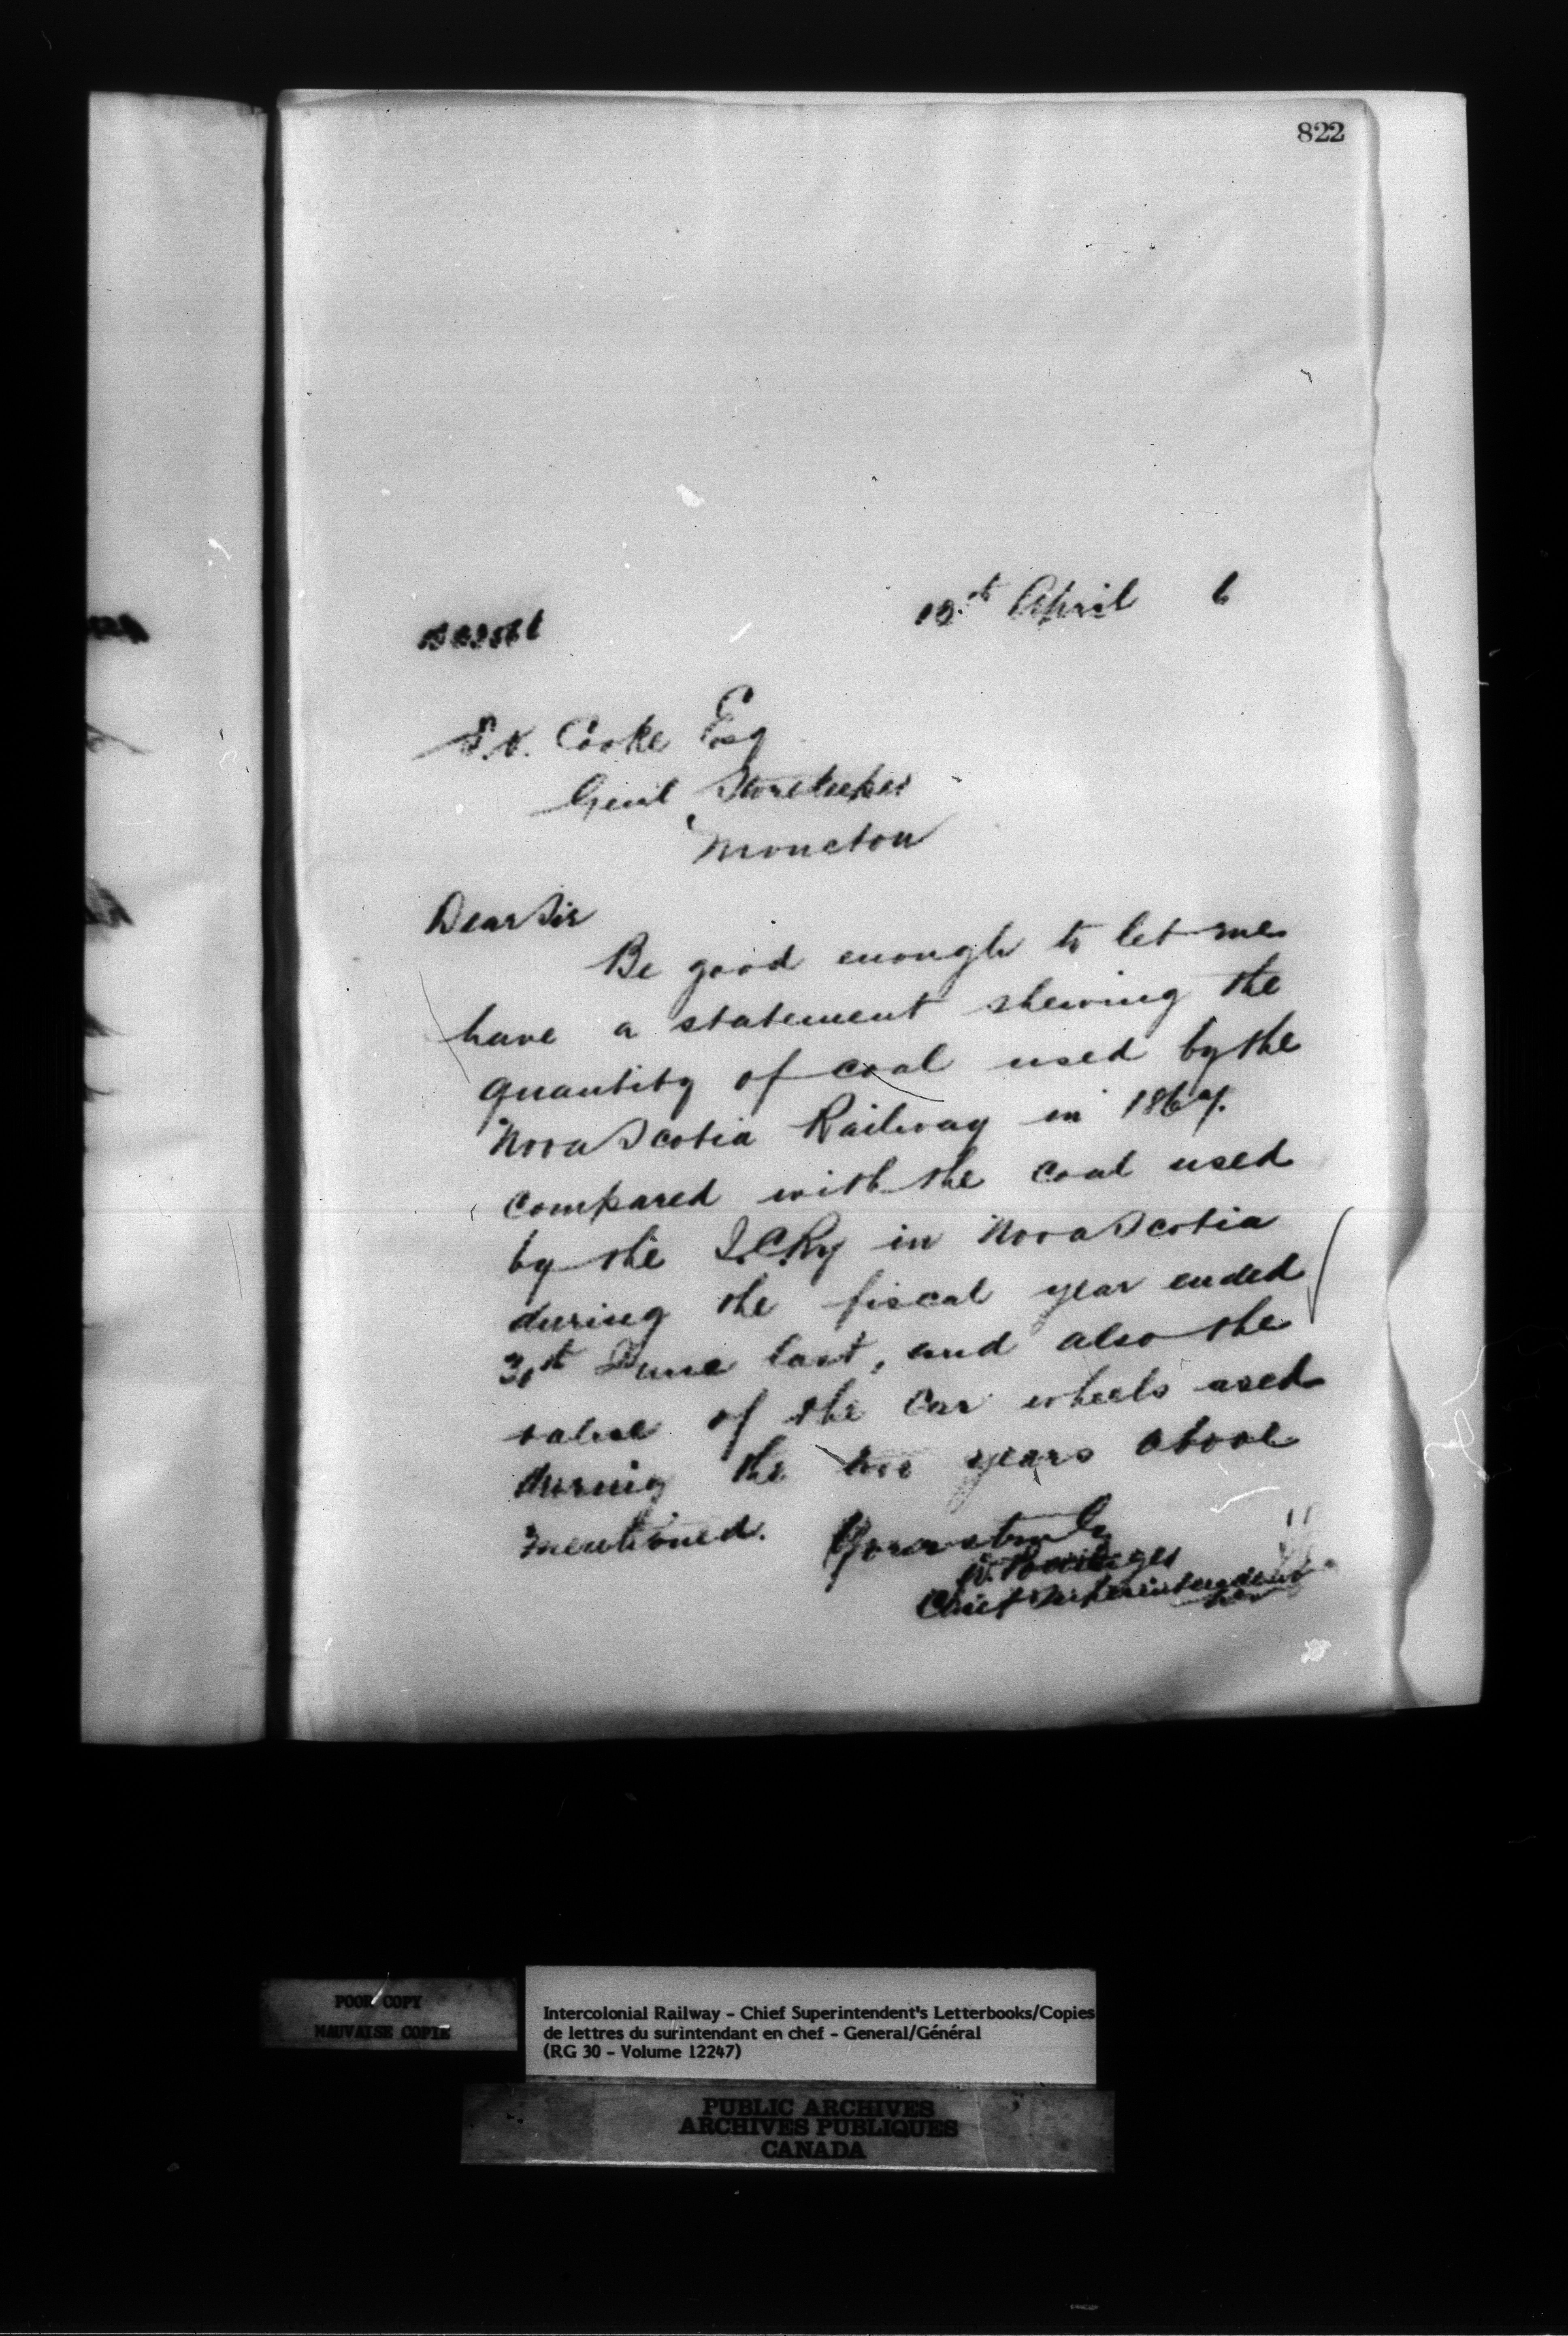 822
13th April 6
Cooke Esq
Genl Storekeeper
Moncton
Dear Sir
Be good enough to let me
have a statement shewing the
quantity of coal used by the
Nova Scotia Railway in 1867.
compared with the coal used
by the I.C.Ry in Nova Scotia
during the fiscal year ended
30th June last, and also the
value of the car wheels used
during the two years above
mentioned. Yours truly
Brydges
Chief Superintendent
POOR COPY
MAUVAISE COPIE
Intercolonial Railway – Chief Superintendent's Letterbooks/Copies
de lettres du surintendant en chef – General/Général
(RG 30 – Volume 12247)
PUBLIC ARCHIVES
ARCHIVES PUBLIQUES
CANADA